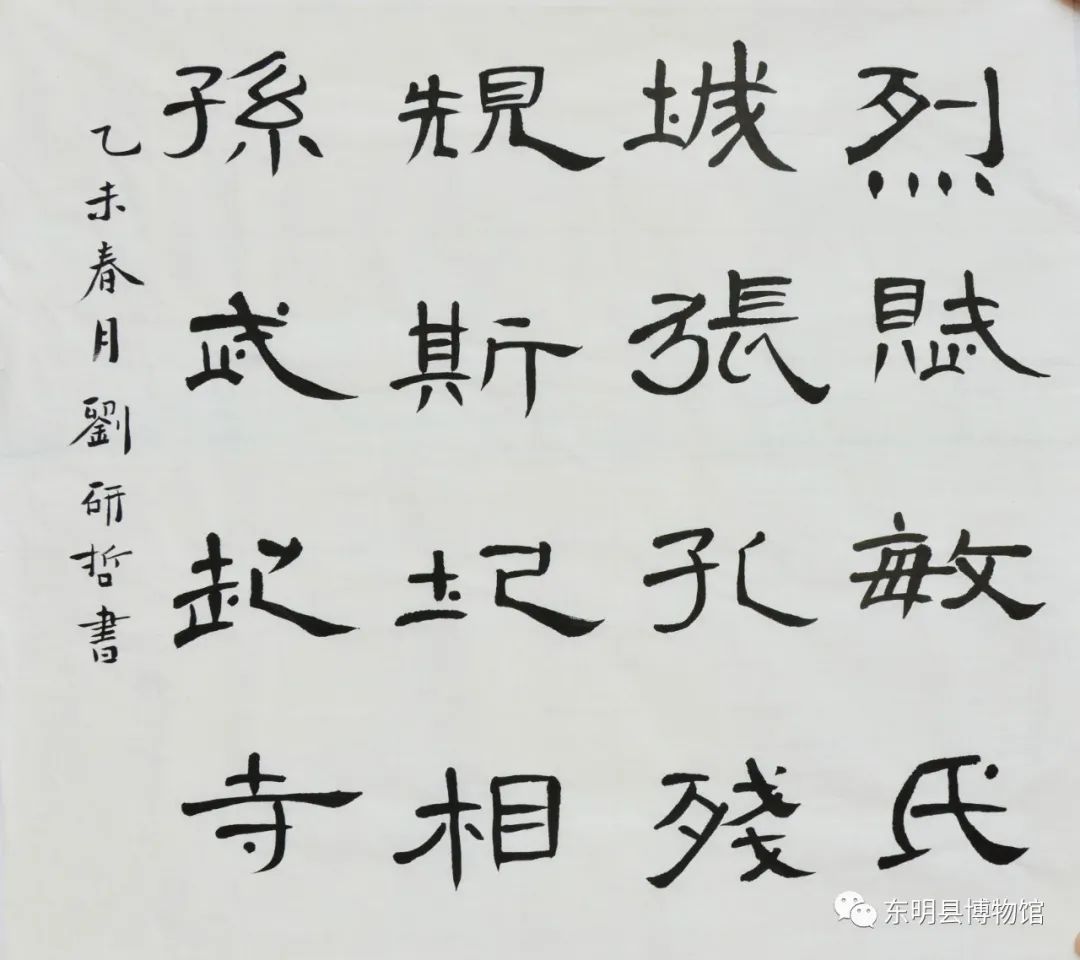 烈賦敏氏
城張孔殘
規斯圯相
孫武起寺
乙未春月劉研哲書
东明县博物馆